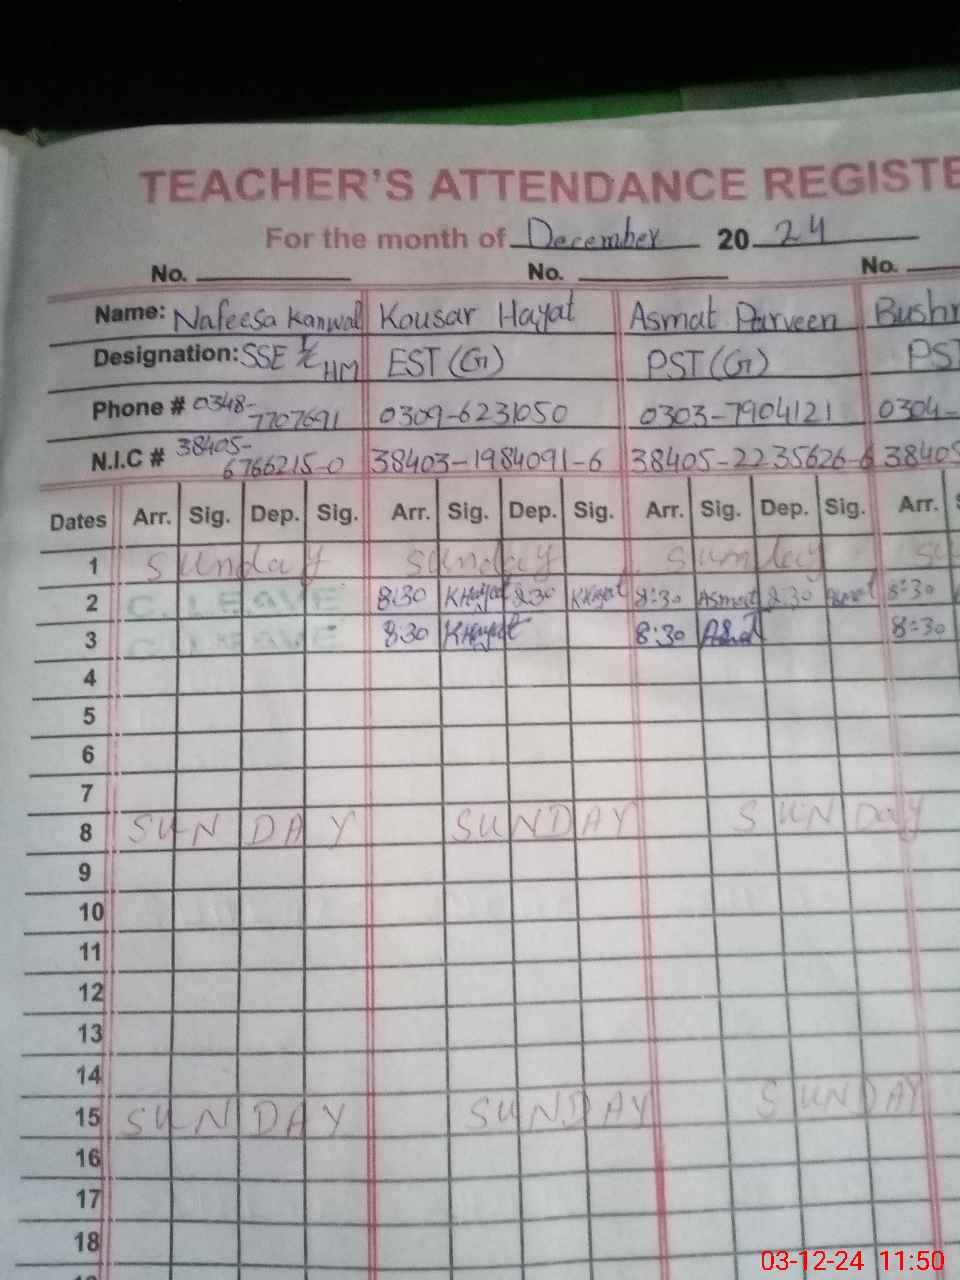 TEACHER'S ATTENDANCE REGISTE
For the month of December 2024
No. No. No.
Name: Nafeesa Kanwal Kousar Hayat Asmat Parveen Bushr
Designation: SSE HM EST (G) PST (G) PST
Phone # 0348-7707691 0309-6231050 0303-7904121 0304-
N.I.C # 38405-6766215-0 38403-1984091-6 38405-2235626-6 38405
Dates Arr. Sig. Dep. Sig. Arr. Sig. Dep. Sig. Arr. Sig. Dep. Sig. Arr. S
1 Sunday Sunday Sunday Su
2 C. LEAVE 8:30 KHayat 2:30 KHayat 8:30 Asmat 2:30 Asmat 8:30
3 C. LEAVE 8:30 KHayat 8:30 8:30
4
5
6
7
8 SUNDAY SUNDAY SUNDay
9
10
11
12
13
14
15 SUNDAY SUNDAY SUNDAY
16
17
18
03-12-24 11:50